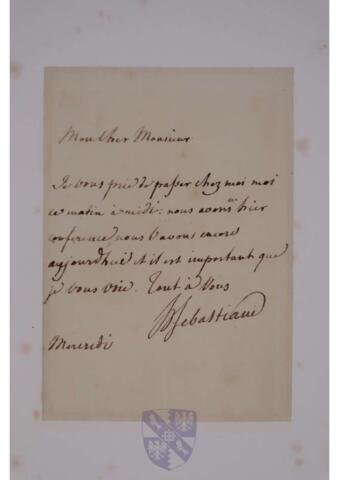 Mon cher Monsieur
Je vous prie de passer chez moi
ce matin à midi: nous avons eu hier
conference nous l'avons encore
aujourdhui et il est important que
je vous voie. Tout à vous
Sebastiani
Mercredi